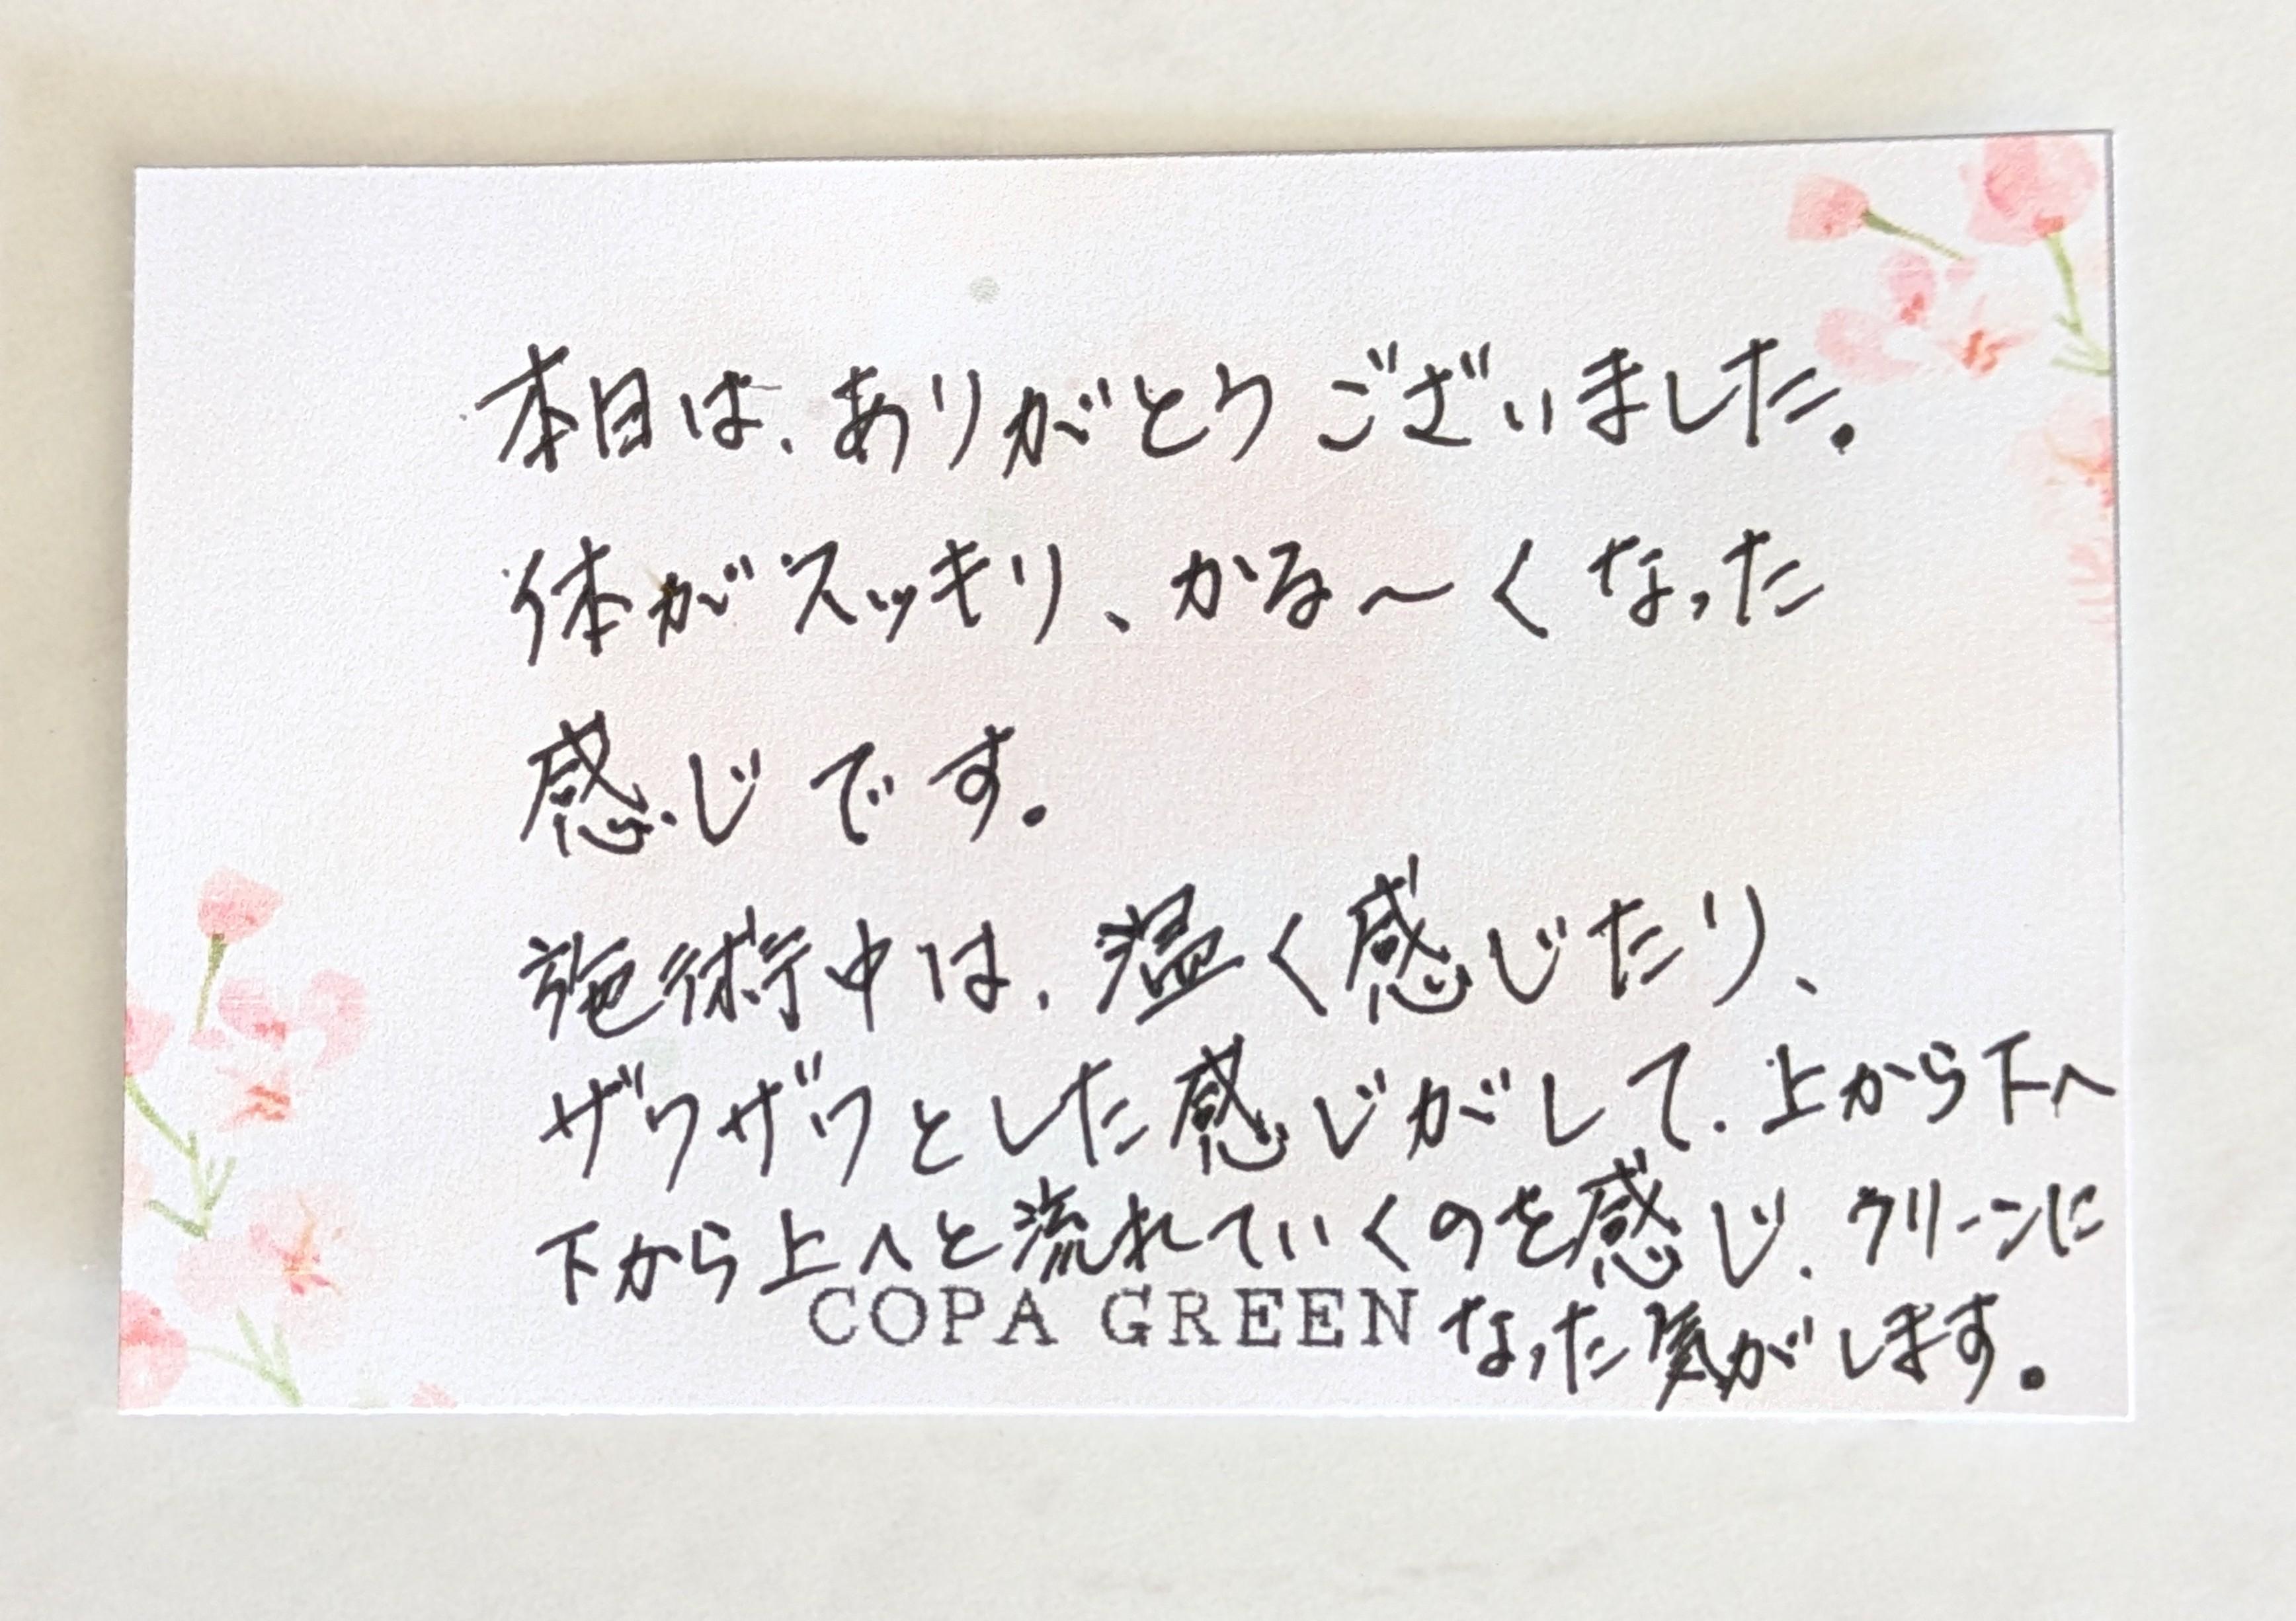 本日は、ありがとうございました。
体がスッキリ、かる〜くなった
感じです。
施術中は、温く感じたり、
ザワザワとした感じがして、上から下へ
下から上へと流れていくのを感じ、クリーンに
なった気がします。
COPA GREEN